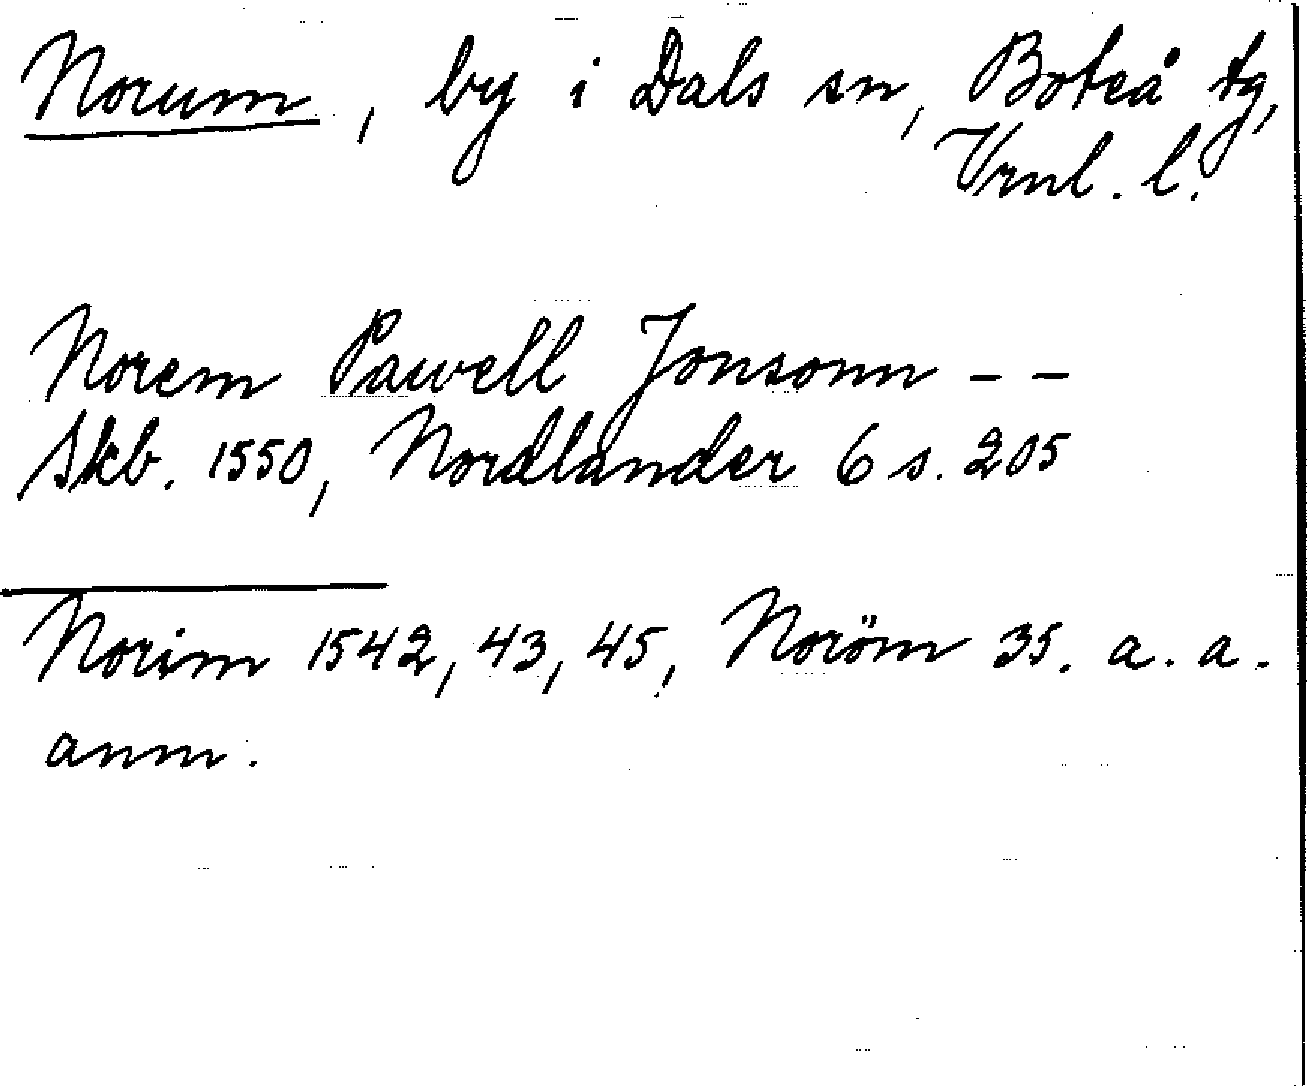 Norum, by i Dals sn, Boteå tg,
Vrnl. l.
Norem Pawell Jonsonn - -
Skb. 1550, Nordlander 6 s. 205
Norim 1542, 43, 45, Noröm 35. a. a.
anm.